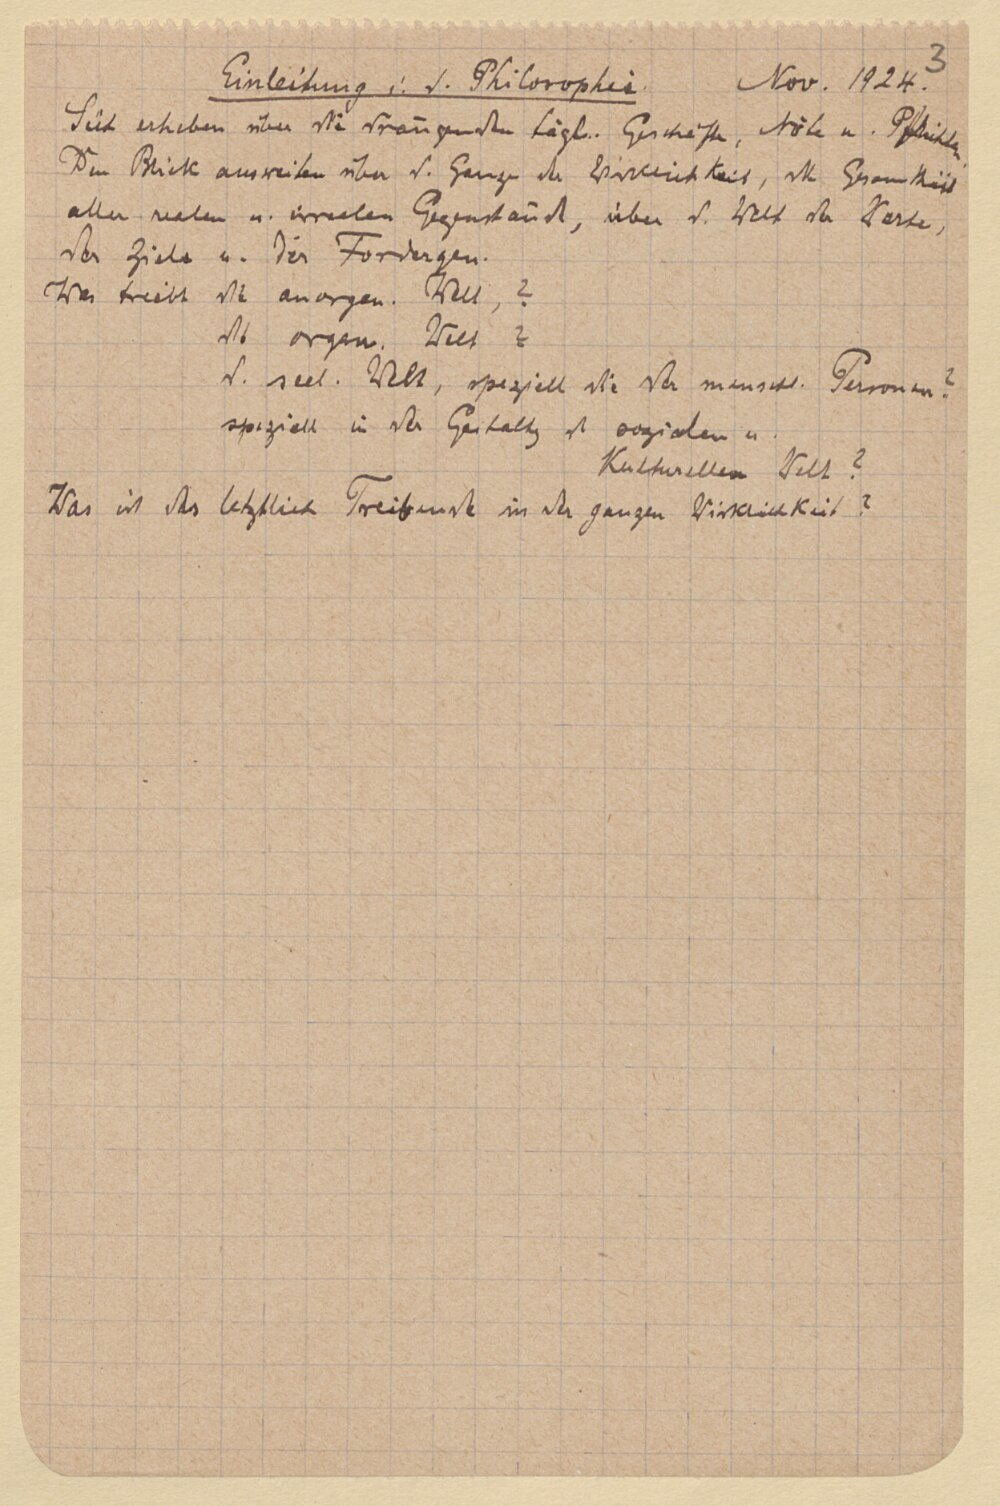 3
Einleitung i. d. Philosophie. Nov. 1924.
Sich erheben über die drängenden tägl. Geschäfte, Nöte u. Pflichten.
Den Blick ausweiten über d. Ganze der Wirklichkeit, die Gesamtheit
aller realen u. irrealen Gegenstände, über d. Welt der Werte,
der Ziele u. der Fordergen.
Was treibt die anorgan. Welt, ?
die organ. Welt ?
d. seel. Welt, speziell die der menschl. Personen?
speziell in der Gestaltg d sozialen u.
Kulturellen Welt ?
Was ist das letztlich Treibende in der ganzen Wirklichkeit ?